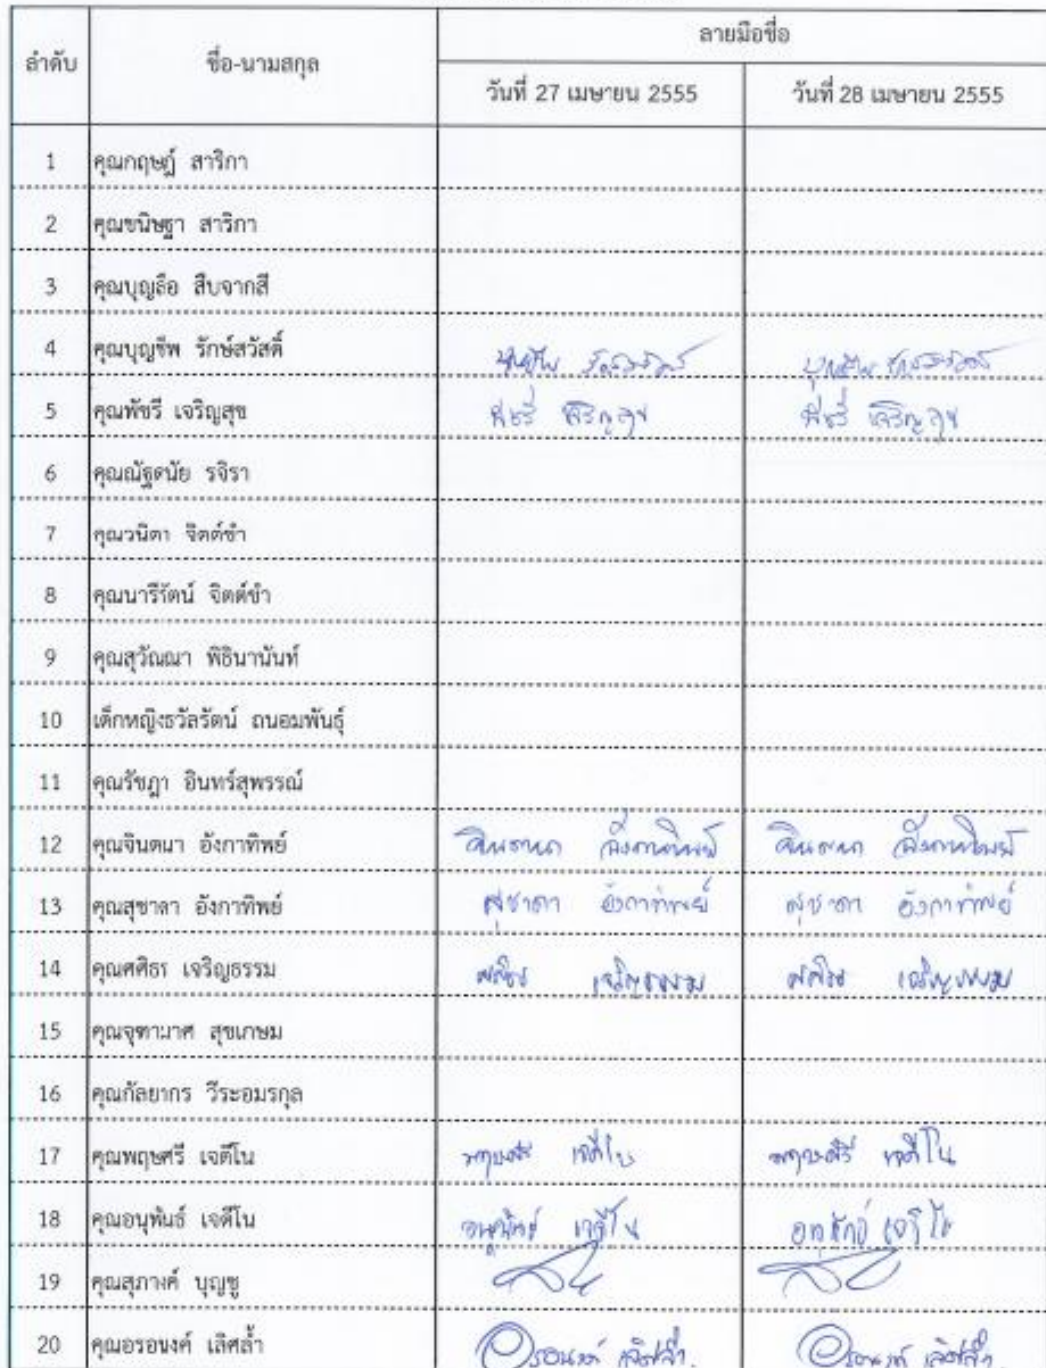 ลำดับ ชื่อ-นามสกุล ลายมือชื่อ
วันที่ 27 เมษายน 2555 วันที่ 28 เมษายน 2555
1 คุณกฤษฎ์ สาริกา
2 คุณขนิษฐา สาริกา
3 คุณบุญลือ สืบจากสี
4 คุณบุญชีพ รักษ์สวัสดิ์
5 คุณพัชรี เจริญสุข พัชรี เจริญสุข พัชรี เจริญสุข
6 คุณณัฐดนัย รจิรา
7 คุณวนิดา จิตต์ขำ
8 คุณนารีรัตน์ จิตต์ขำ
9 คุณสุวัณณา พิธินานันท์
10 เด็กหญิงธวัลรัตน์ ถนอมพันธุ์
11 คุณรัชฎา อินทร์สุพรรณ์
12 คุณจินตนา อังกาทิพย์ จินตนา อังกาทิพย์ จินตนา อังกาทิพย์
13 คุณสุชาดา อังกาทิพย์ สุชาดา อังกาทิพย์ สุชาดา อังกาทิพย์
14 คุณศศิธร เจริญธรรม ศศิธร เจริญธรรม ศศิธร เจริญธรรม
15 คุณจุฑามาศ สุขเกษม
16 คุณกัลยากร วีระอมรกุล
17 คุณพฤษศรี เจตีโน พฤษศรี เจตีโน พฤษศรี เจตีโน
18 คุณอนุพันธ์ เจตีโน อนุพันธ์ เจตีโน
19 คุณสุภางค์ บุญชู
20 คุณอรอนงค์ เลิศล้ำ อรอนงค์ เลิศล้ำ อรอนงค์ เลิศล้ำ